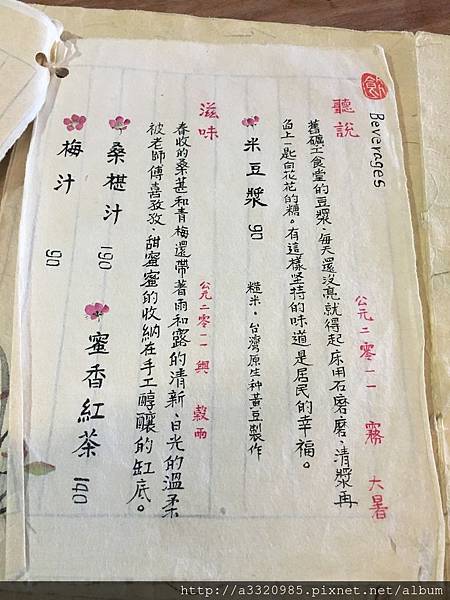 飲
Beverages
聽說 公元二零一一 霧 大暑
舊礦工食堂的豆漿,每天還沒亮就得起床用石磨,磨,清漿再
舀上一匙白花花的糖。有這樣坚持的味道是居民的幸福。
米豆漿 90 糙米,台灣原生种黃豆製作
滋味 公元二零一一 興 穀雨
春收的桑葚和青梅還帶著雨和露的清新,日光的溫柔
被老師傅喜孜孜,甜蜜蜜的收納在手工醇釀的缸底。
桑椹汁 190
蜜香紅茶 140
梅汁 90
http://a3320985.pixnet.net/album